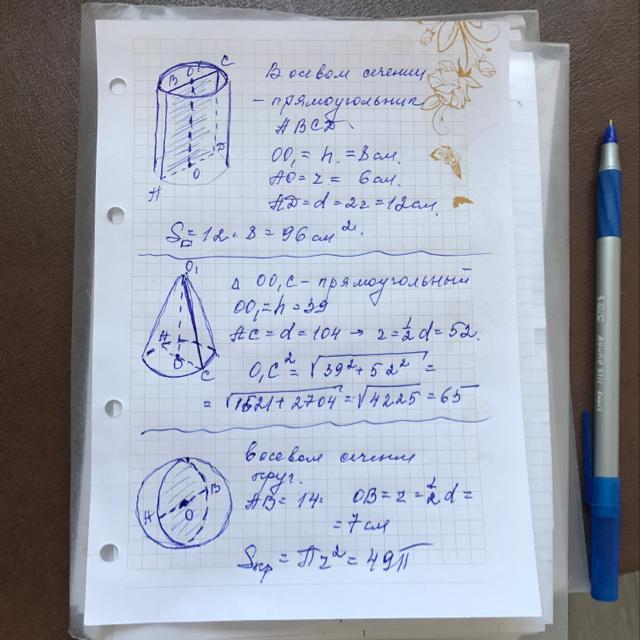 В осевом сечении
- прямоугольник
ABCD.
OO₁ = h = 8 см.
AO = r = 6 см.
AD = d = 2r = 12 см.
S□ = 12 · 8 = 96 см².
B O₁ C
A O D
Δ OO₁C - прямоугольный
OO₁ = h = 39
AC = d = 104 → r = ½d = 52.
O₁C² = √39² + 52² =
= √1521 + 2704 = √4225 = 65
O₁
A O C
В осевом сечении
круг.
AB = 14. OB = r = ½d =
= 7 см
Sкр = Пr² = 49π
A O B